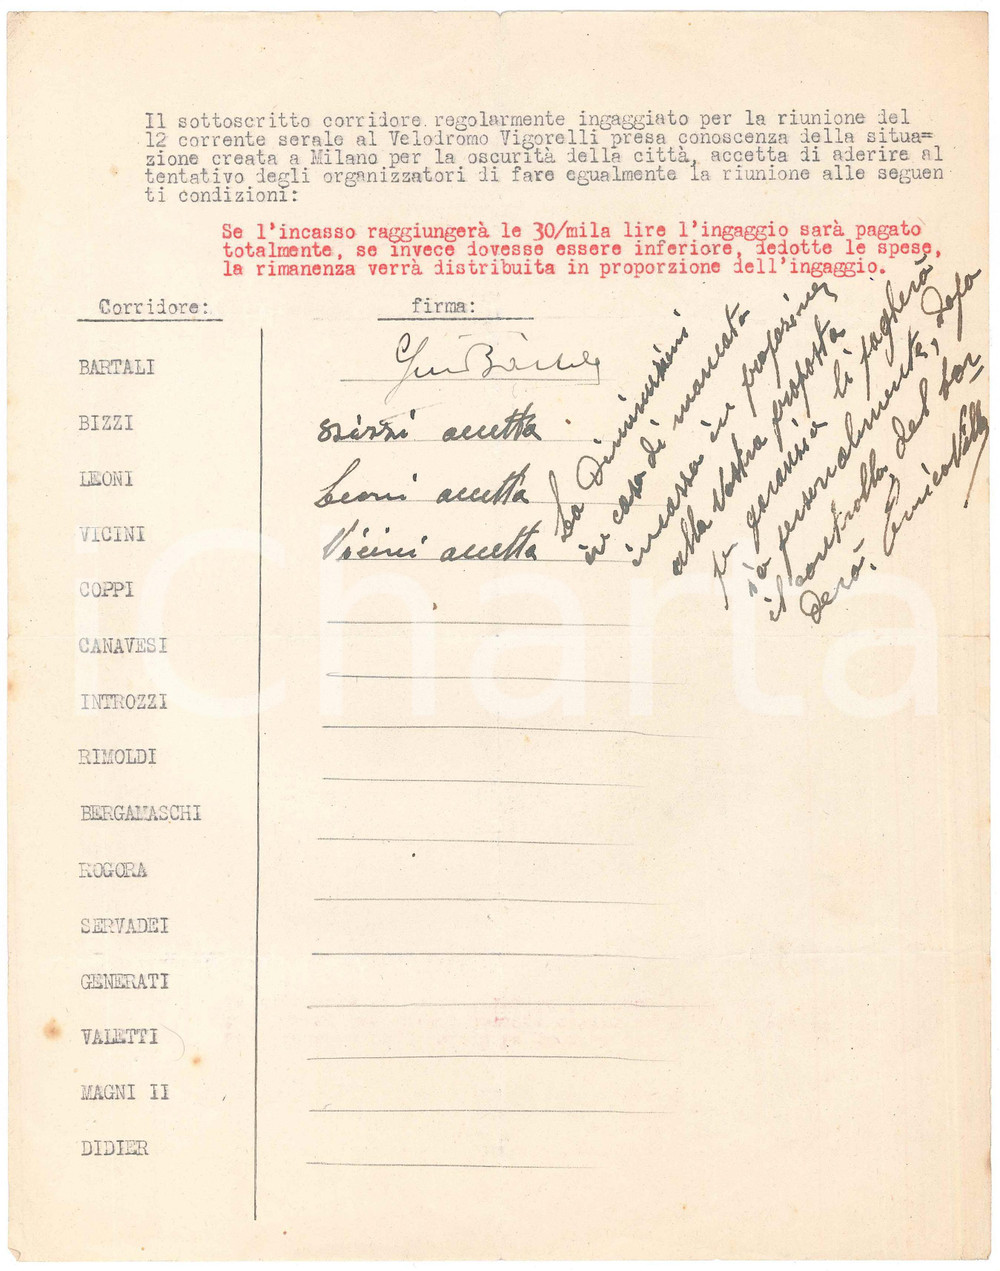 Il sottoscritto corridore regolarmente ingaggiato per la riunione del
12 corrente serale al Velodromo Vigorelli presa conoscenza della situa=
zione creata a Milano per la oscurità della città, accetta di aderire al
tentativo degli organizzatori di fare egualmente la riunione alle seguen
ti condizioni:
Se l'incasso raggiungerà le 30/mila lire l'ingaggio sarà pagato
totalmente, se invece dovesse essere inferiore, dedotte le spese,
la rimanenza verrà distribuita in proporzione dell'ingaggio.
Corridore: firma:
BARTALI Gino Bartali
BIZZI Bizzi accetta
LEONI Leoni accetta
VICINI Vicini accetta
COPPI
CANAVESI
INTROZZI
RIMOLDI
BERGAMASCHI
ROGORA
SERVADEI
GENERATI
VALETTI
MAGNI II
DIDIER
La diminuzioni
in caso di mancato
incasso in proporzione
alla vostra proposta
per garanzia li pagherò
io personalmente, dopo
il controllo del bor
derò. Enrico Villa
iCharta